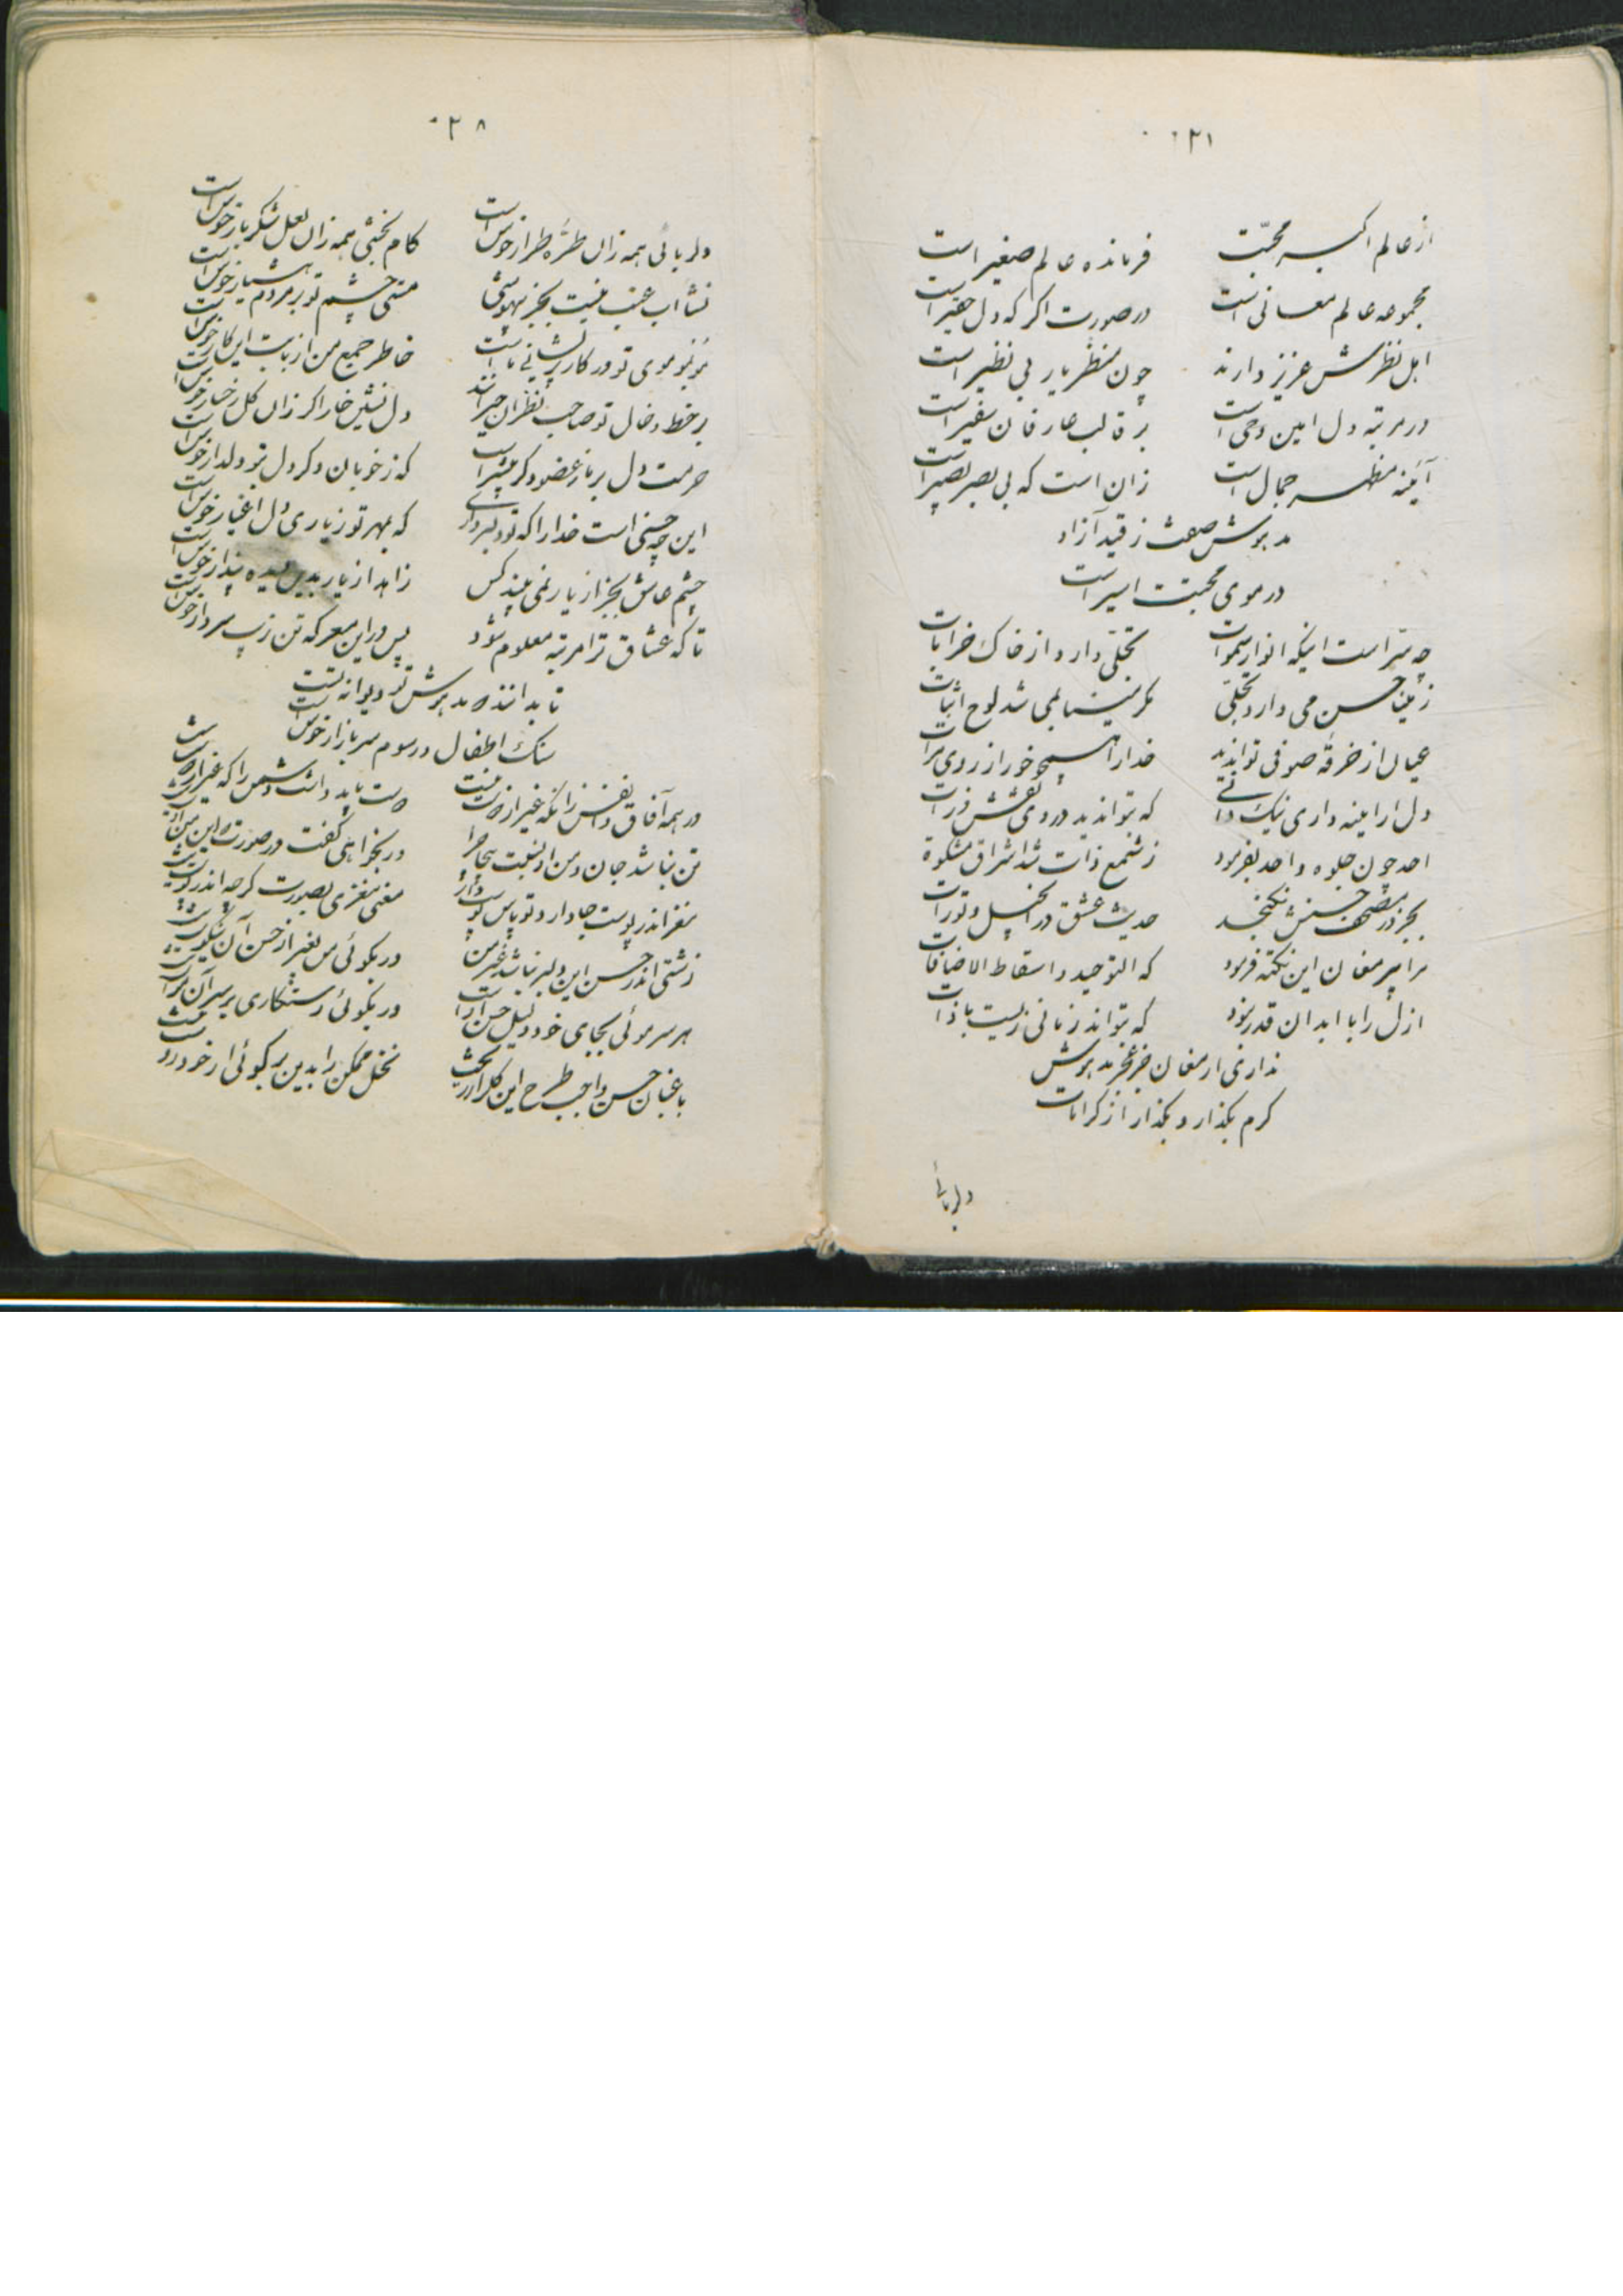 ۰۲۱
از عالم اکبر محبّت فرمانده عالم صغیر است
مجموعه عالم معانی است در صورت اگر که دل حقیر است
اهل نظرش عزیز دارند چون منظر یار بی نظیر است
در مرتبه دل امین وحی است بر قالب عارفان سفیر است
آئینه مظهر جمال است زان است که بی بصر بصیر است
مدهوش صفت ز قید آزاد
در موی محبّت اسیر است
چه سرّ است اینکه انوار سموات تجلّی دارد از خاک خرابات
ز مینا حسن می دارد تجلّی مگر مینای می شد لوح اثبات
عیان از خرقه صوفی تواند دید خدا را همچو خور از روی مرآت
دل ار آینه داری نیک دانی که تواند دید در وی نقش ذرات
احد چون جلوه واحد بفرمود ز شمع ذات شد اشراق مشکوة
بجز در مصحف حسنش نگنجد حدیث عشق در انجیل و تورات
مرا پیر مغان این نکته فرمود که التوحید اسقاط الاضافات
ازل را با ابد آن قدر نبود که بتواند زمانی زیست با ذات
نداری ارمغان جز عجز مدهوش
کرم بگذار و بگذار از کرامات
دلربائی
۰۲۸
دلربائی همه زان طرّه طرار خوش است کام بخشی همه زان لعل شکربار خوش است
نشأاب عنب نیست بجز بیهوشی مستی چشم تو بر مردم هشیار خوش است
مو بمو موی تو در کار پریشانی ماست خاطر جمع من از بابت این کار خوش است
بر خط و خال تو صاحب نظران حیرانند دل نشین خار اگر زان گل رخسار خوش است
حرمت دل بر ما ز عضو دگر بیشتر است که ز خوبان دگر دل بر دلدار خوش است
این چه حسنی است خدا را که تو دلبر داری که بمهر تو ز یاری دل اغیار خوش است
چشم عاشق بجز از یار نمی بیند کس زاهد از یار بدین دیده پندار خوش است
تا که عشاق ترا مرتبه معلوم شود پس در این معرکه تن زیب سر دار خوش است
تا بدانند که مدهوش تو دیوانه تست
سنک اطفال در سوم سر بازار خوش است
در همه آفاق و انفس زانکه غیر از دوست نیست دوست باید داشت دشمن را که غیر از دوست نیست
تن نباشد جان و من او نیست بیجا مرا ور بخواهی گفت در صورت من این من اوست نیست
مغز اندر پوست جا دارد تو پاس پوست دار معنی مغزی بصورت گرچه اندر پوست نیست
زشتی اندر حسن این دلبر نباشد غیر من ور بگوئی من بغیر از حسن آن نیکوست نیست
هر سر موئی بجای خود دلیل حسن اوست ور بگوئی رستگاری بر سر آن موست نیست
باغبان حسن واجب طرح این گلزار ریخت نخل ممکن را بدین بر گوئی ار خودروست نیست